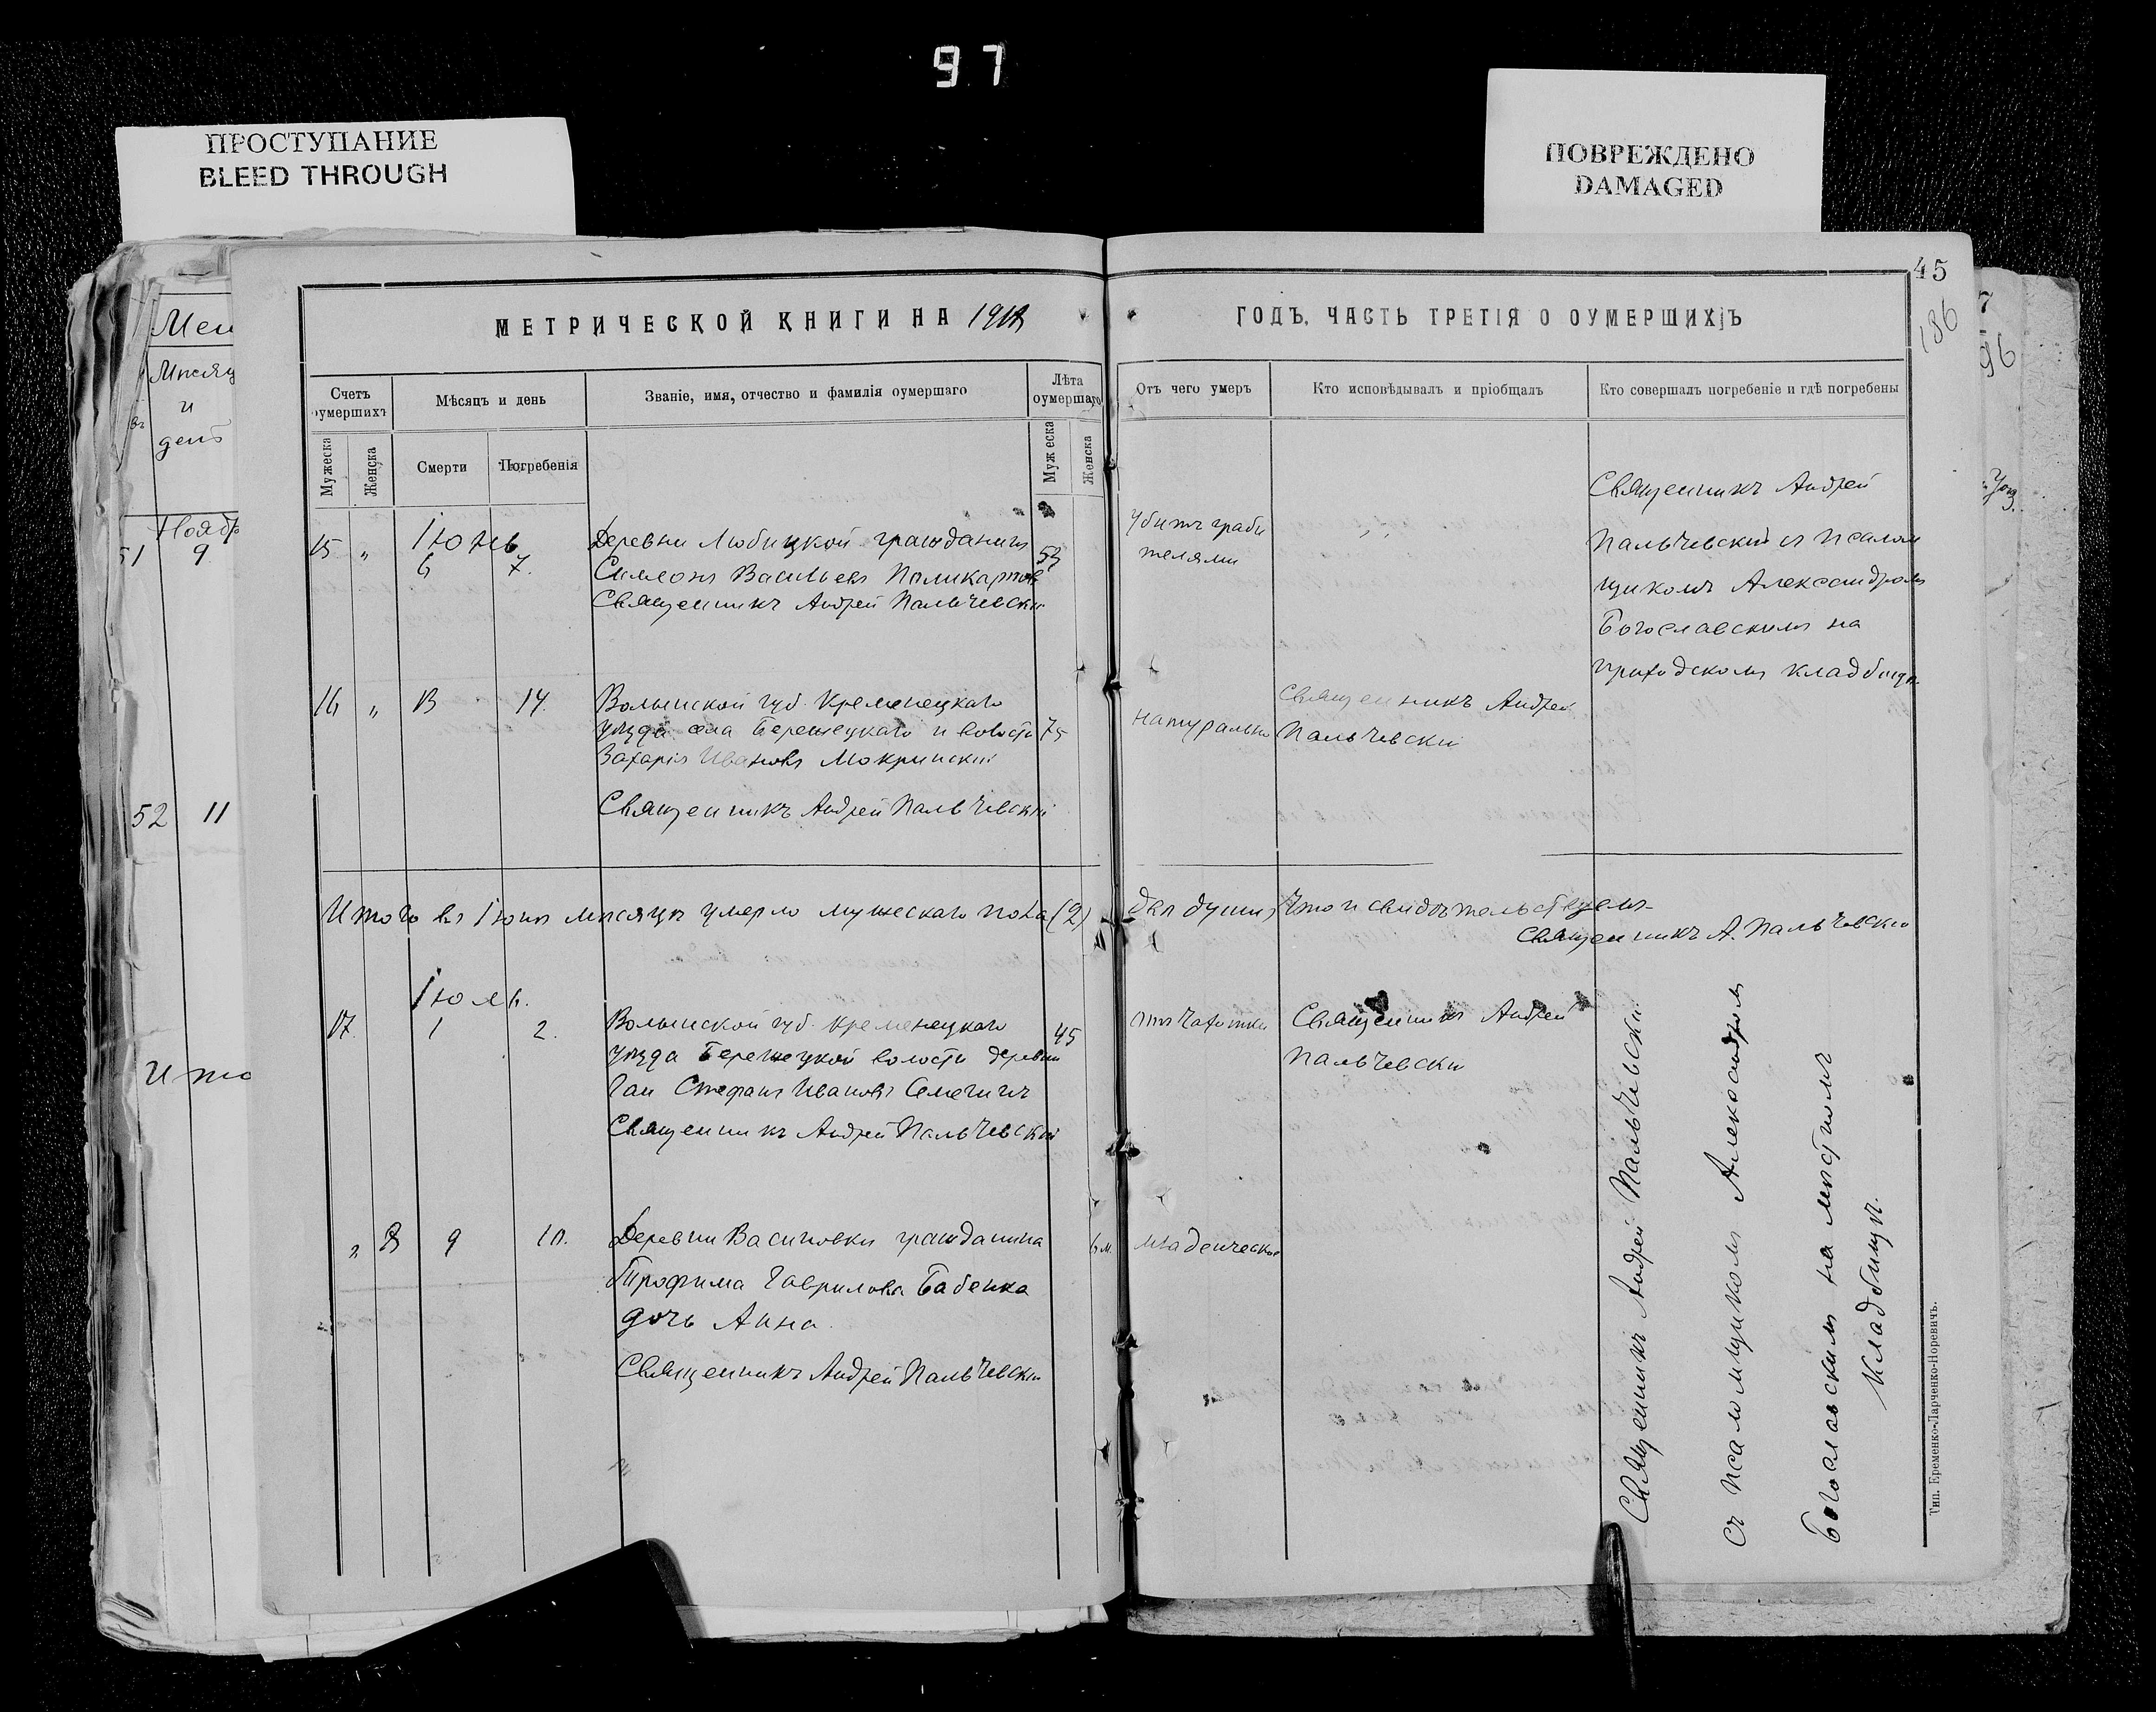 97
ПРОСТУПАНИЕ
BLEED THROUGH
ПОВРЕЖДЕНО
DAMAGED
45
186
96
МЕТРИЧЕСКОЙ КНИГИ НА 1918
ГОДЪ, ЧАСТЬ ТРЕТІЯ О ОУМЕРШИХЪ
Счетъ оумершихъ
Мѣсяцъ и день
Званіе, имя, отчество и фамилія оумершаго
Лѣта оумершаго
Отъ чего умеръ
Кто исповѣдывалъ и пріобщалъ
Кто совершалъ погребеніе и гдѣ погребены
Мужеска
Женска
Смерти
Погребенія
Мужеска
Женска
Іюнь
15 „ 6 7. Деревни Любицкой гражданинъ 53
Симеонъ Васильевъ Поликарповъ
Священникъ Андрей Пальчевскій
Убитъ граби
телями
Священникъ Андрей
Пальчевскій съ псалом
щикомъ Александромъ
Богославскимъ на
приходскомъ кладбищѣ.
16 „ 13 14. Волынской губ. Кременецкаго
уѣзда села Бережецкаго и волости 75
Захарія Ивановъ Мокринскій
Священникъ Андрей Пальчевскій
натурально
Священникъ Андрей
Пальчевскій
Итого въ Іюнѣ мѣсяцѣ умерло мужескаго пола (2) двѣ души, что и свидѣтельствуемъ
Священникъ А. Пальчевскій
Іюль.
17. 1 2. Волынской губ. Кременецкаго 45
уѣзда Бережецкой волости деревни
Гаи Стефанъ Ивановъ Семенигъ
Священникъ Андрей Пальчевскій
отъ чахотки
Священникъ Андрей
Пальчевскій
„ 8 9 10. Деревни Васиновки гражданина 6 м.
Трофима Гаврилова Бабенка
дочь Анна.
Священникъ Андрей Пальчевскій
младенческое
Священникъ Андрей Пальчевскій
съ псаломщикомъ Александромъ
Богославскимъ на мѣстномъ
кладбищѣ.
Тип. Еременко-Ларченко-Норевичъ.
Мѣсяцъ
и
день
Ноябр
51 9
52 11
Ито